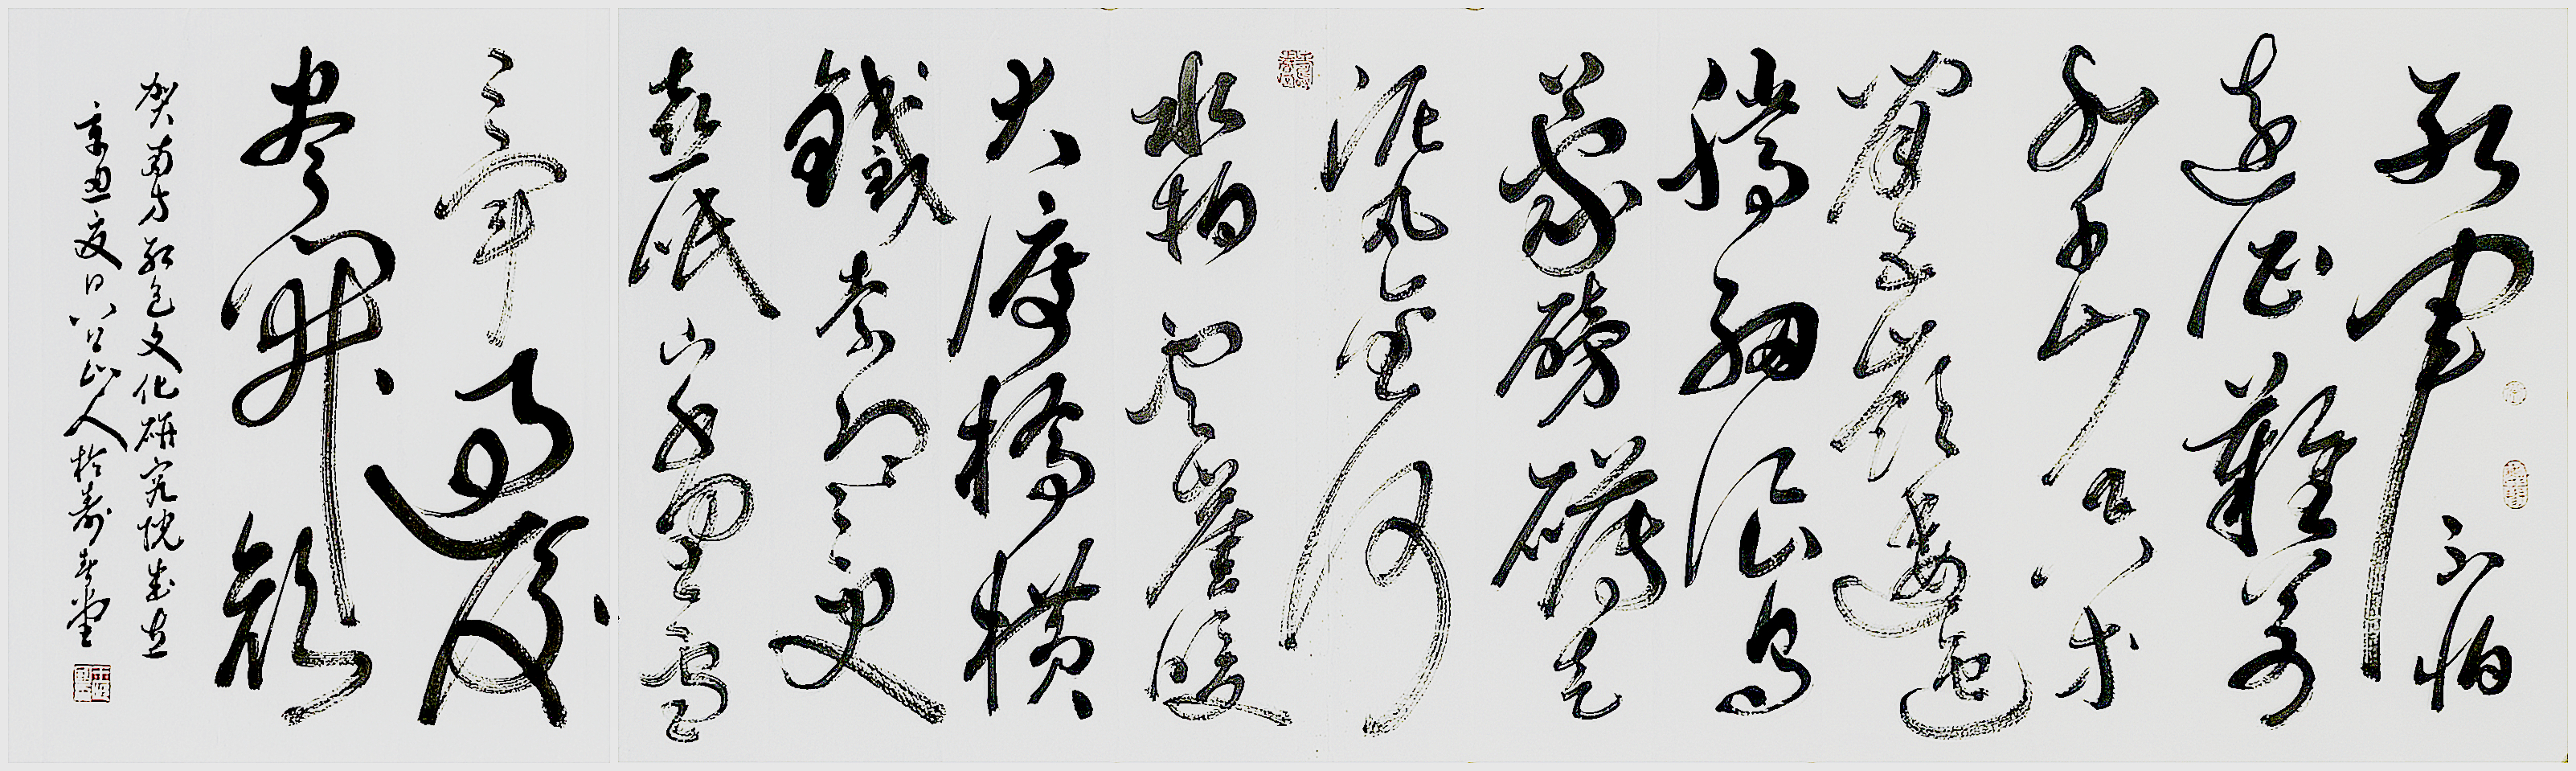 红军不怕
远征難萬
水千山只等
闲五岭逶迤
腾细浪乌
蒙磅礴走
泥丸金沙
水拍云崖暖
大渡橋横
鐵索寒更
喜岷山千里雪
三军过后
尽开颜
贺南方红色文化研究院成立
辛丑夏日八公山人於寿春堂